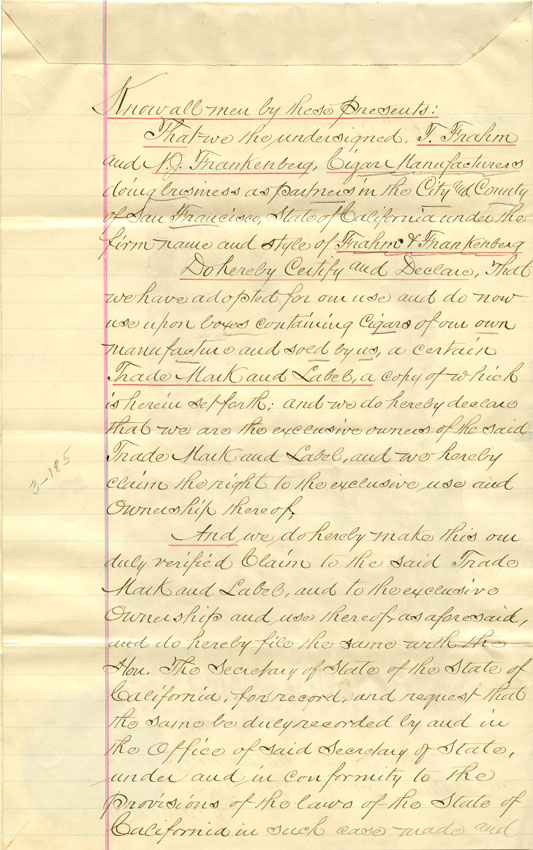 Know all men by these Presents:
That we the undersigned. T. Frahm
and N.J. Frankenberg, Cigar Manufacturers
doing business as partners in the City and County
of San Francisco, State of California under the
firm name and style of Frahm & Frankenberg
Do hereby Certify and Declare, That
we have adopted for our use and do now
use upon boxes containing Cigars of our own
manufacture and sold by us, a certain
Trade Mark and Label, a copy of which
is herein set forth; and we do hereby declare
that we are the exclusive owners of the said
Trade Mark and Label, and we hereby
claim the right to the exclusive use and
Ownership thereof,
3-185
And we do hereby make this our
duly verified Claim to the said Trade
Mark and Label, and to the exclusive
Ownership and use thereof, as aforesaid,
and do hereby file the same with the
Hon. The Secretary of State of the State of
California, for record, and request that
the same be duly recorded by and in
the Office of said Secretary of State,
under and in conformity to the
Provisions of the laws of the State of
California in such case made and